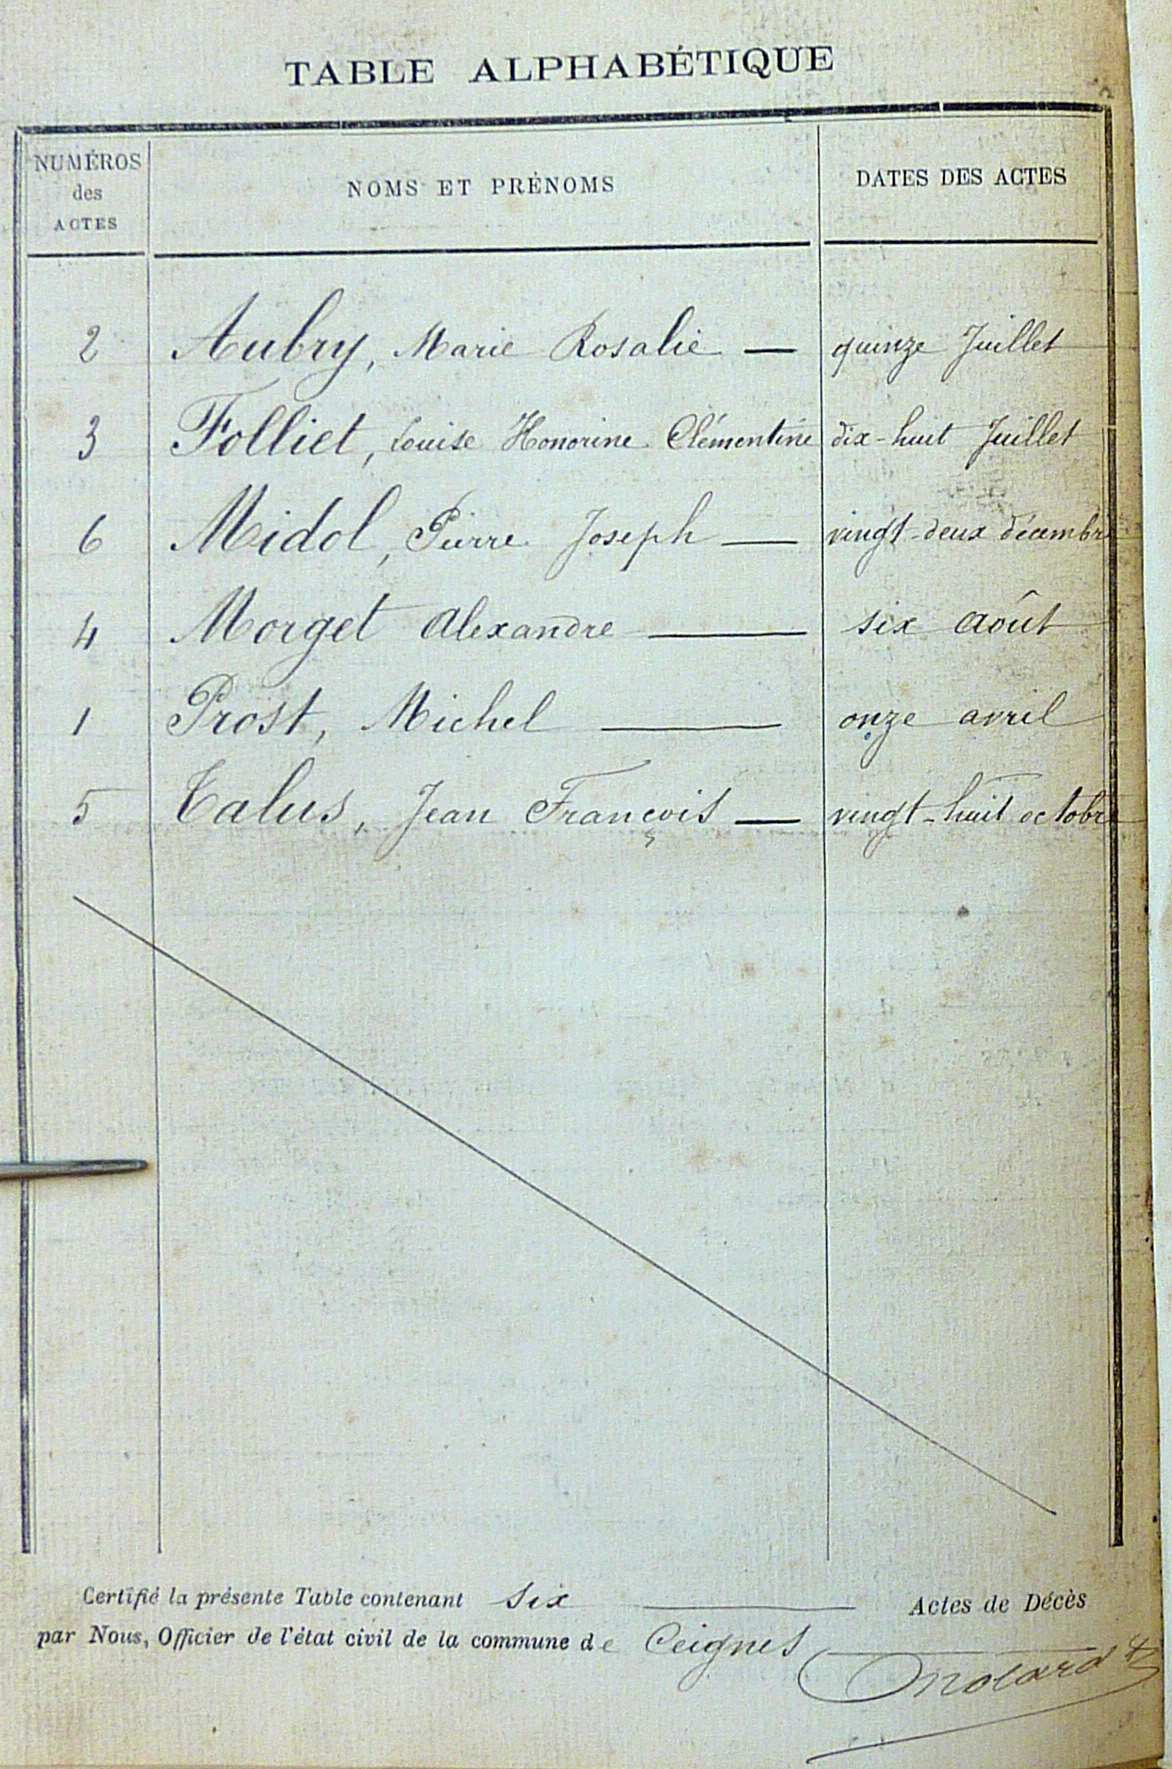 TABLE ALPHABÉTIQUE
NUMÉROS des ACTES NOMS ET PRÉNOMS DATES DES ACTES
2 Aubry, Marie Rosalie — quinze Juillet
3 Folliet, Louise Honorine Clémentine dix-huit Juillet
6 Midol, Pierre Joseph — vingt-deux décembre
4 Morget Alexandre — six Août
1 Prost, Michel — onze avril
5 Talus, Jean François — vingt-huit octobre
Certifié la présente Table contenant six Actes de Décès
par Nous, Officier de l'état civil de la commune de Ceignes